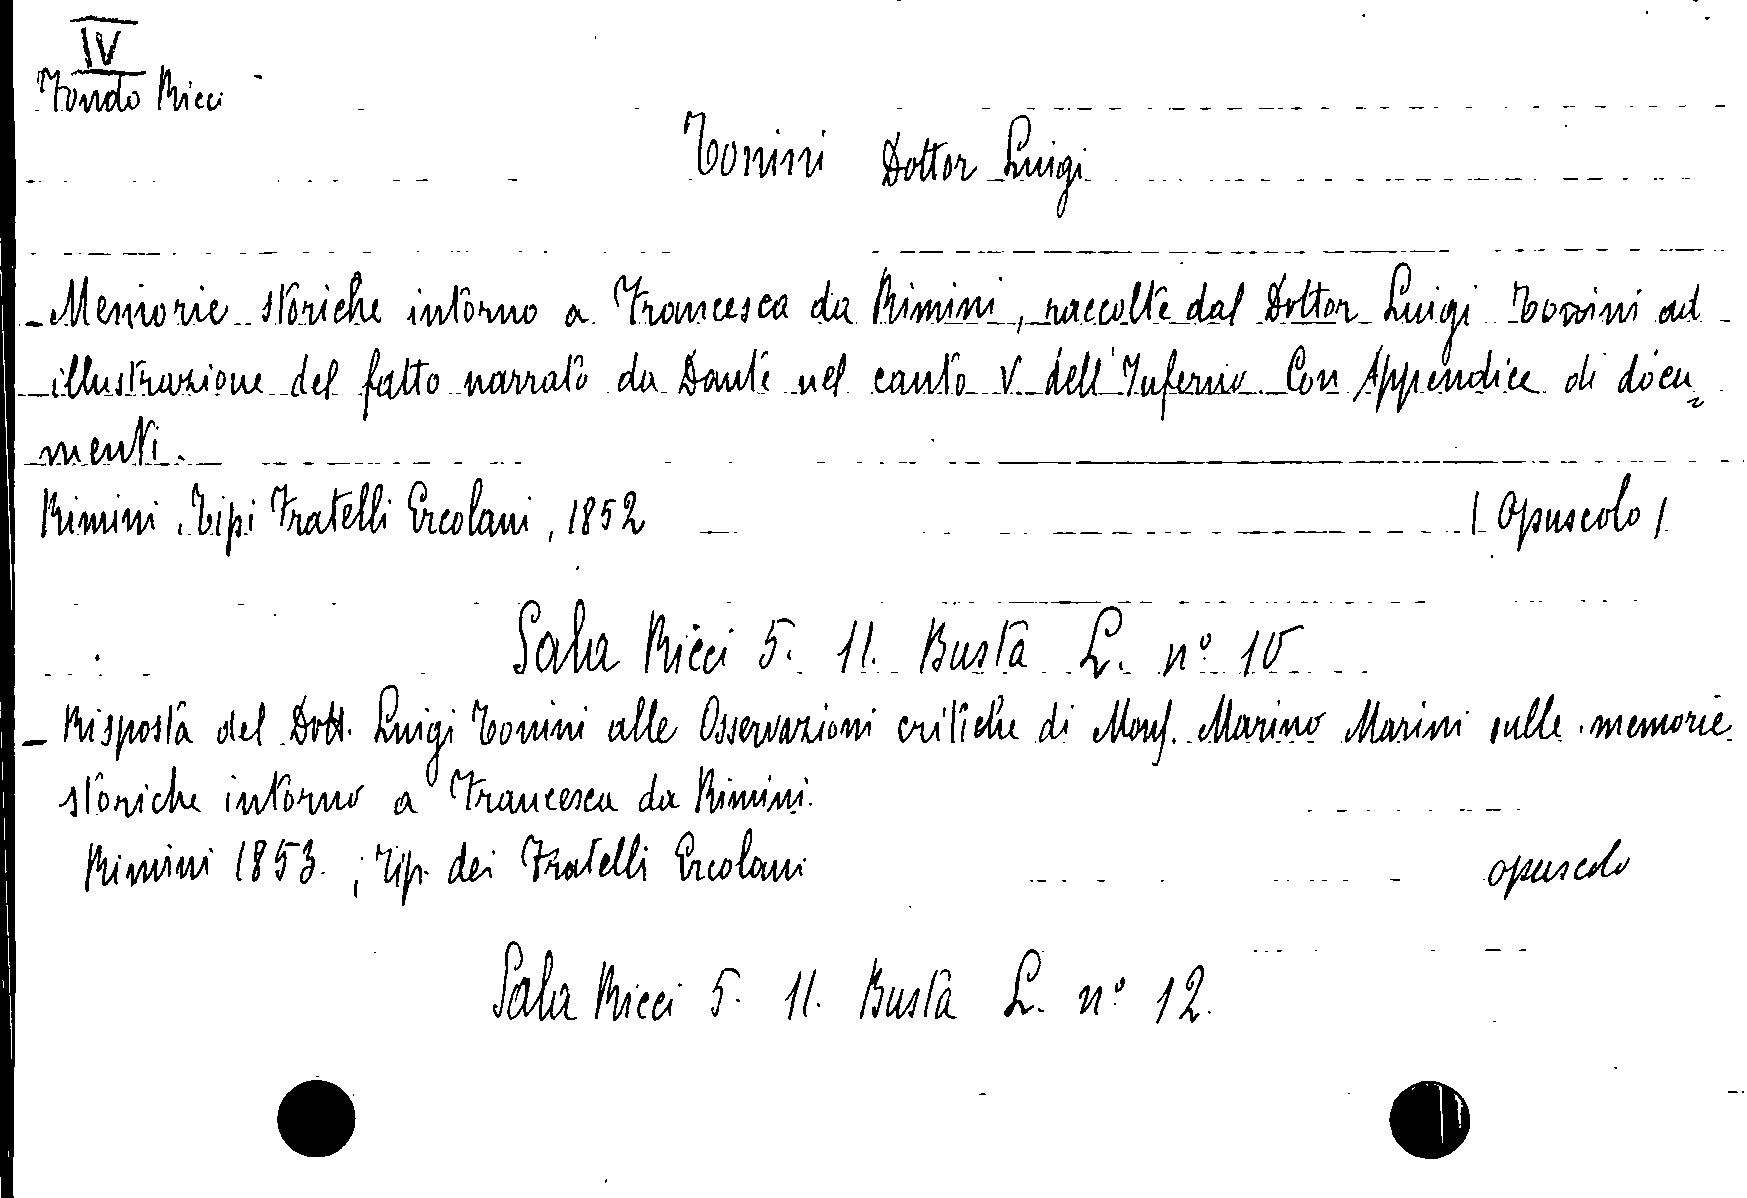 IV
Fondo Ricci
Tonini Dottor Luigi
- Memorie storiche intorno a Francesca da Rimini, raccolte dal Dottor Luigi Tonini ad
illustrazione del fatto narrato da Dante nel canto V. dell'Inferno. Con Appendice di docu=
menti.
Rimini, Tipi Fratelli Ercolani, 1852 / Opuscolo /
Sala Ricci 5. 11. Busta L. n° 10
- Risposta del Dott. Luigi Tonini alle Osservazioni critiche di Mons. Marino Marini sulle memorie
storiche intorno a Francesca da Rimini.
Rimini 1853. ; Tip. dei Fratelli Ercolani opuscolo
Sala Ricci 5. 11. Busta L. n° 12.